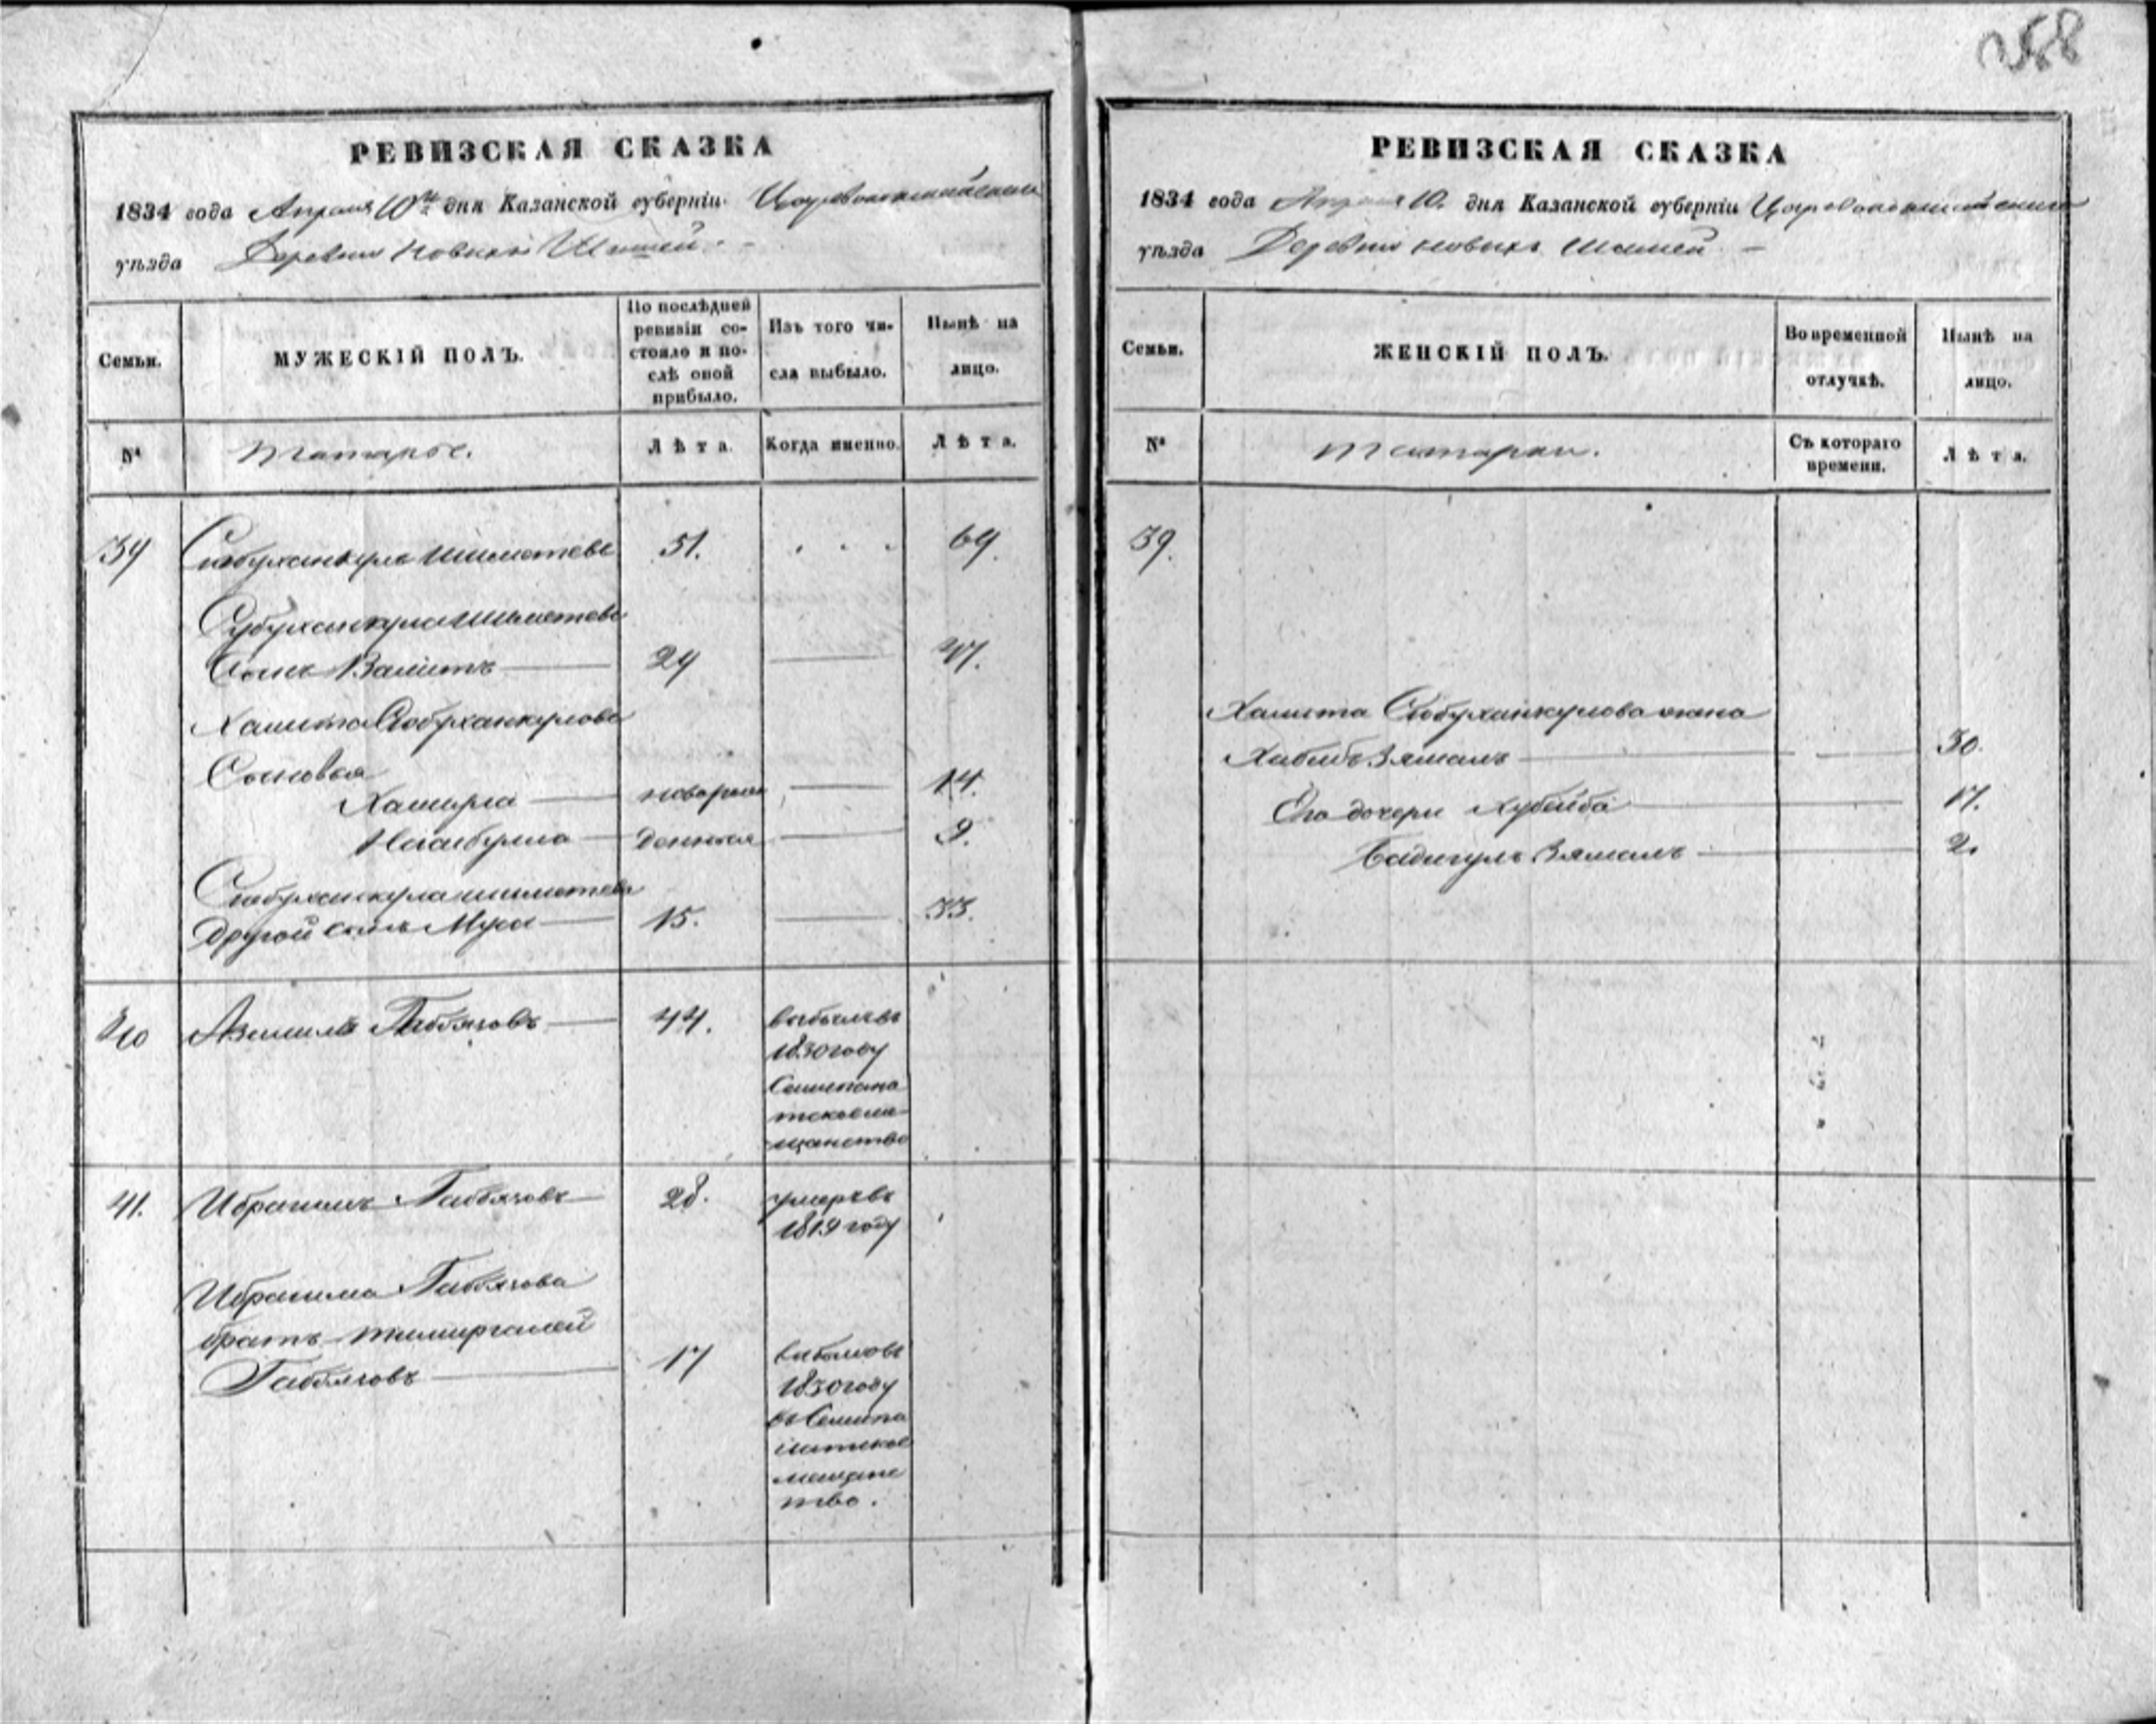 258
РЕВИЗСКАЯ СКАЗКА
1834 года Апреля 10го дня Казанской губернiи Царевококшайскаго
уѣзда Деревни Новыхъ Шашей
Семьи.
МУЖЕСКIЙ ПОЛЪ.
По послѣдней ревизiи состояло и послѣ оной прибыло.
Изъ того числа выбыло.
Нынѣ на лицо.
№
Татаръ.
Лѣта.
Когда именно.
Лѣта.
39 51. 69.
сынъ 29 47.
Сыновья
новорож 14.
денные 9.
другой сынъ Муса 15. 33.
40 44. выбылъ въ
1830 году
Семипала
тское ме
щанство
41. Ибрагимъ Габбясовъ 28. умеръ въ
1819 году
Ибрагима Габбясова
братъ Тимиргалей
Габбясовъ 17 выбылъ въ
1830 году
въ Семипа
латское
мещанс
тво.
РЕВИЗСКАЯ СКАЗКА
1834 года Апреля 10. дня Казанской губернiи Царевококшайскаго
уѣзда Деревни Новыхъ Шашей
Семьи.
ЖЕНСКIЙ ПОЛЪ.
Во временной отлучкѣ.
Нынѣ на лицо.
№
Татарки.
Съ котораго времени.
Лѣта.
39.
Хамита Сюбуханкулова жена
Хабибъ Зямалъ 30.
Его дочери Хубейба 17.
Бадигулъ Зямалъ 2.